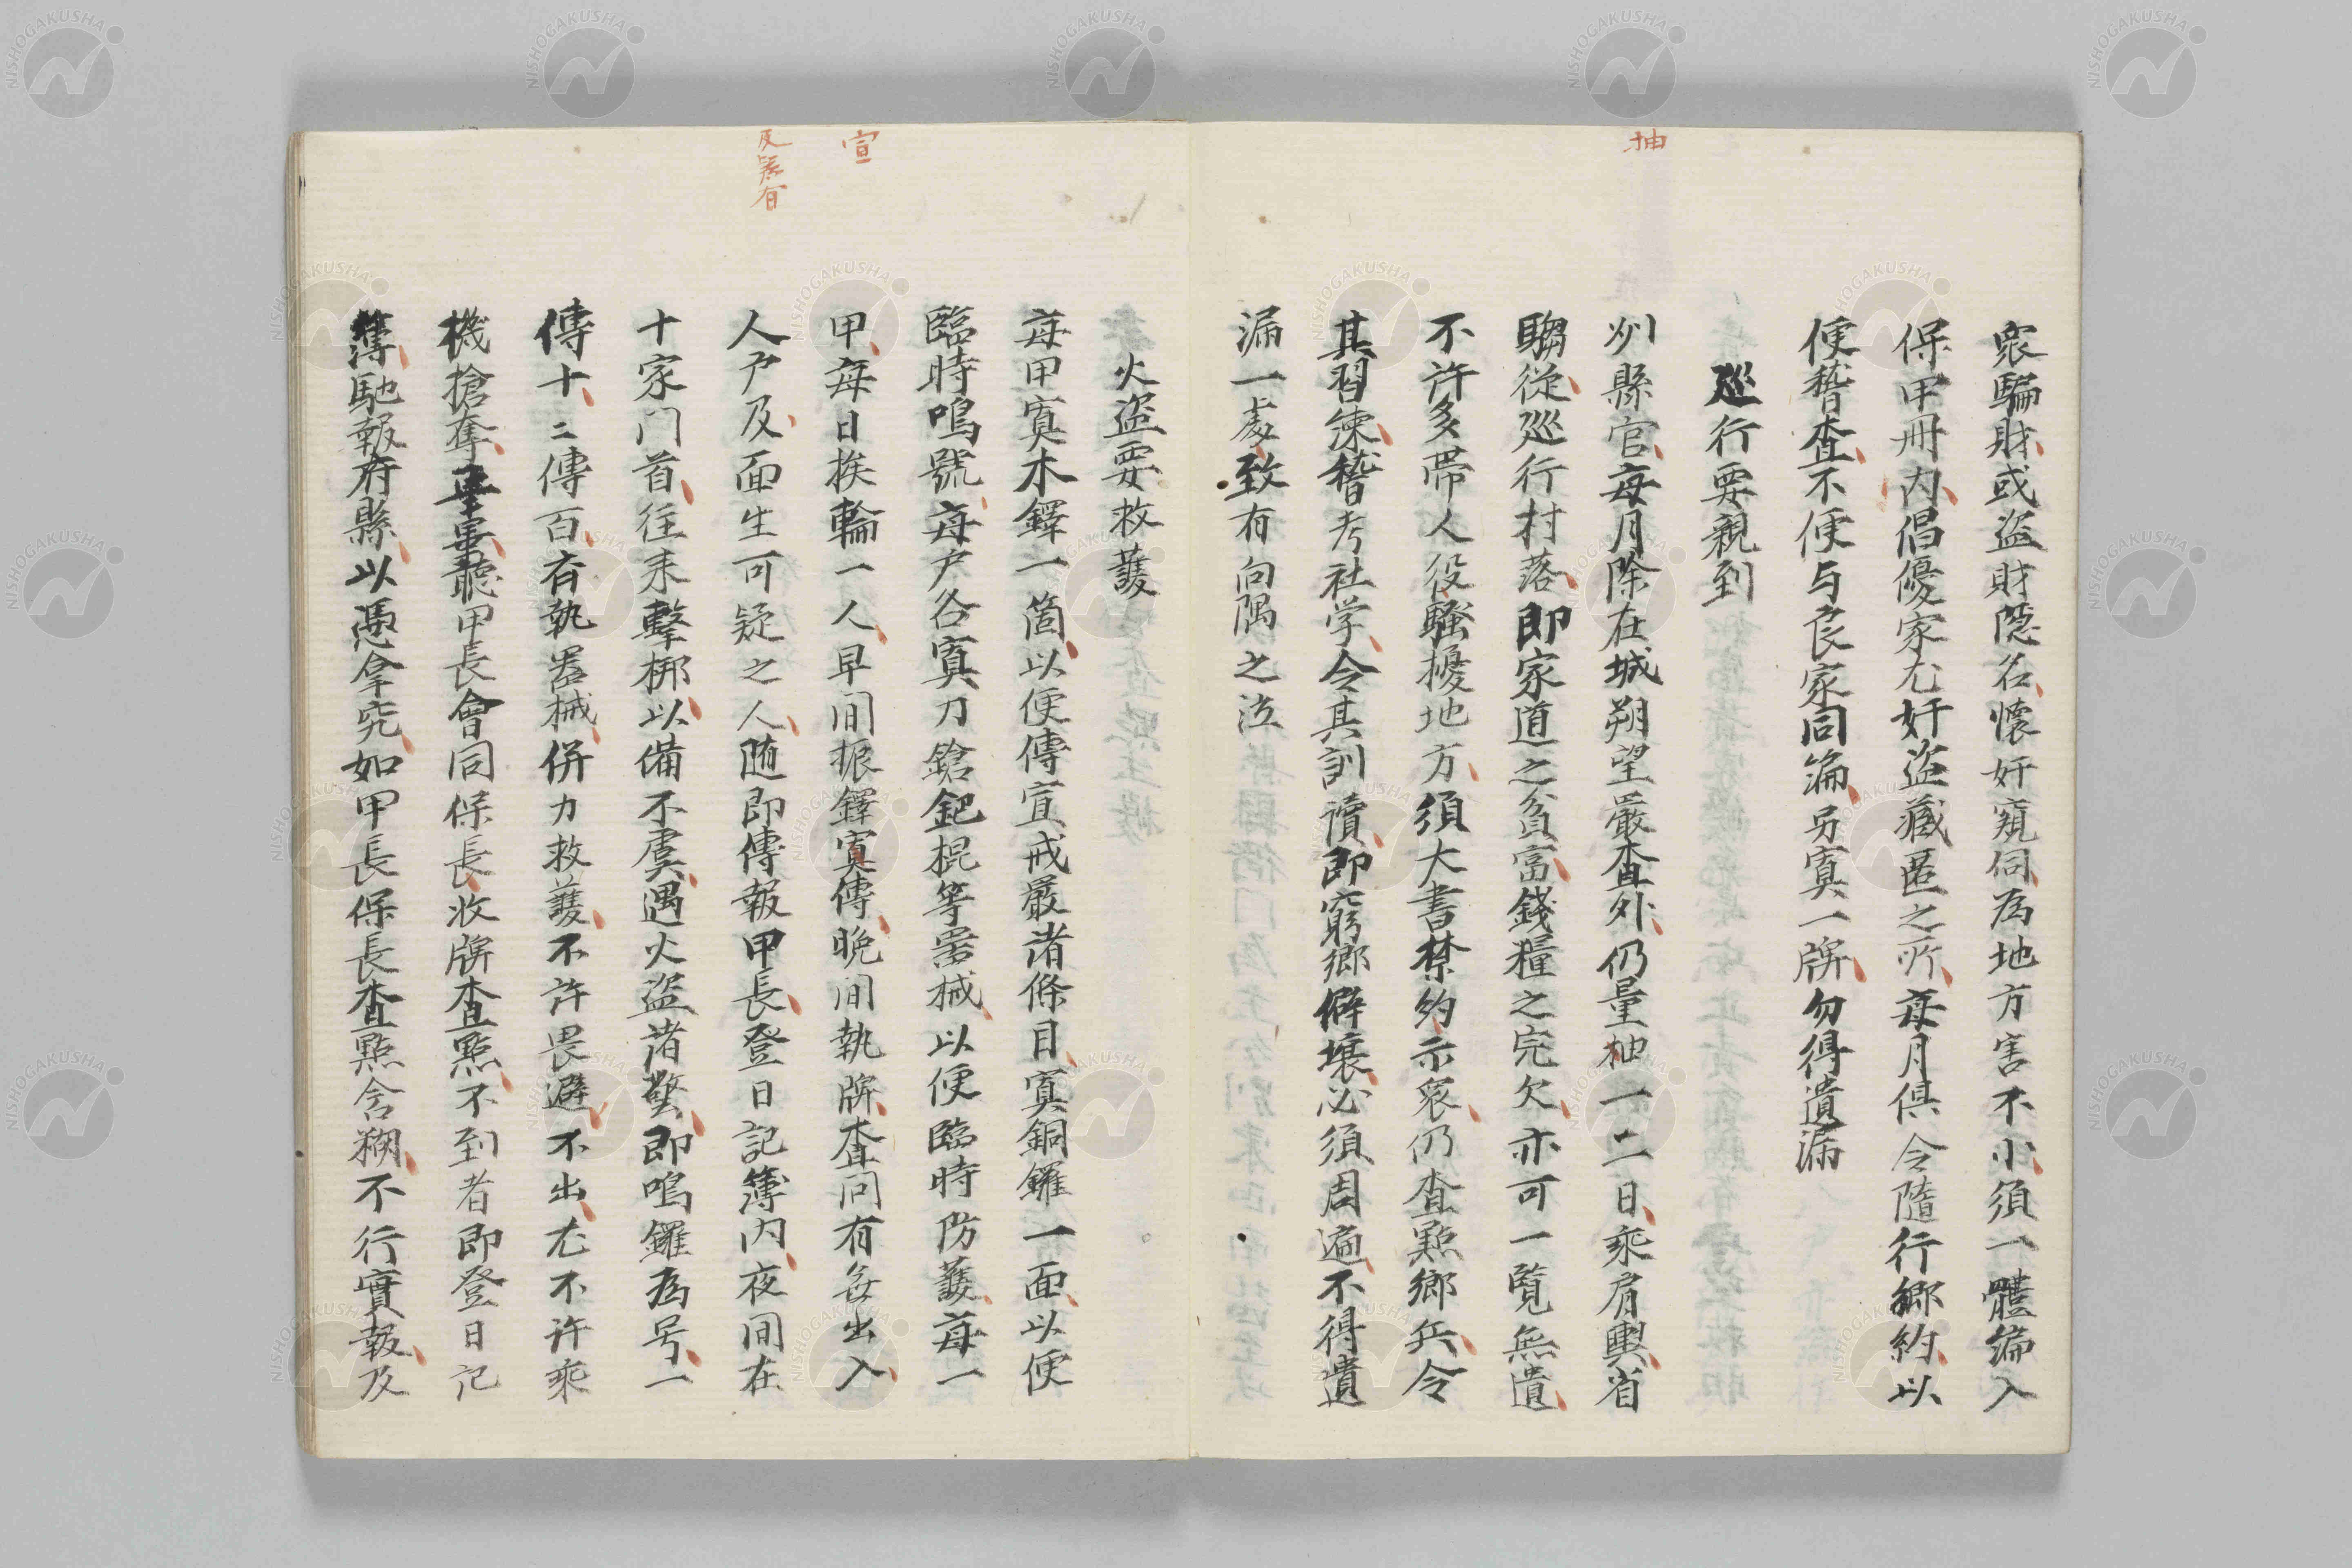 抽
衆騙財或盜財隱名懷奸窺伺為地方害不小須一體編入
保甲册内倡優家尤奸盜藏匿之所每月俱令隨行鄉約以
便稽查不便与良家同編另寘一牌勿得遺漏
巡行要親到
州縣官每月除在城朔望嚴查外仍量柚一二日乘肩輿省
騶從巡行村落即家道之貧富錢糧之完欠亦可一覽無遺
不許多帶人役騷擾地方須大書禁約示衆仍查點鄉兵令
其習練稽考社学令其訓讀即窮鄉僻壤必須周遍不得遺
漏一處致有向隅之泣
宣
反疑有
火盜要救護
每甲寘木鐸一箇以便傳宣戒嚴諸條目寘銅鑼一面以便
臨時鳴號每户各寘刀鎗鈀棍等器械以便臨時防護每一
甲每日挨輪一人早间振鐸寘傳晚间執牌查问有無出入
人户及面生可疑之人随即傳報甲長登日記簿内夜间在
十家门首往来擊梆以備不虞遇火盜諸警即鳴鑼為号一
傳十二傳百各執器械併力救護不許畏避不出尤不許乘
機搶奪事畢聽甲長會同保長收牌查點不到者即登日記
簿馳報府縣以憑拿究如甲長保長查點含糊不行實報及
NISHOGAKUSHA